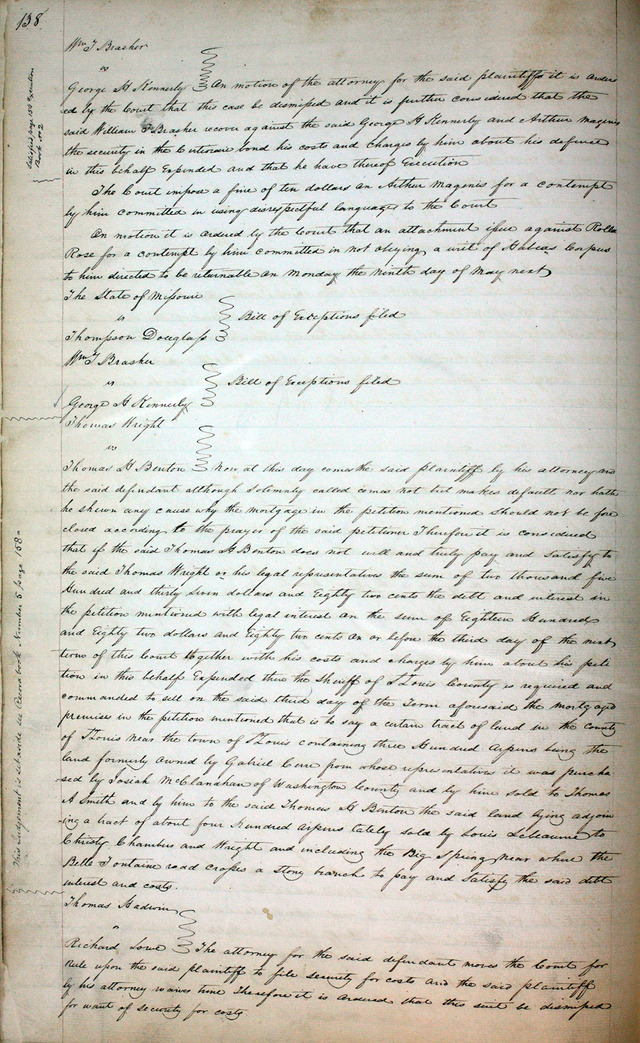 138
Wm T Brasher
vs
George H Kennerly On motion of the attorney for the said plaintiff it is order
ed by the Court that this case be dismissed and it is further considered that the
said William T Brasher recover against the said George H Kennerly and Arthur Magenis
the security in the bond his costs and charges by him about his defense
in this behalf Expended and that he have thereof Execution
The Court impose a fine of ten dollars on Arthur Magenis for a contempt
by him committed in using disrespectful language to the Court
On motion it is ordered by the Court that an attachment issue against
Rose for a contempt by him committed in not obeying a writ of Habeas Corpus
to him directed to be returnable on Monday the Ninth day of May next
The State of Missouri
vs
Bill of Exceptions filed
Thompson Douglass
Wm T Brasher
vs
Bill of Exceptions filed
George H Kennerly
Thomas Wright
vs
Thomas H Benton Now at this day comes the said plaintiff by his attorney and
the said defendant although solemnly called comes not but makes default nor hath
he shewn any cause why the mortgage in the petition mentioned should not be fore
closed according to the prayer of the said petitioner Therefore it is considered
that if the said Thomas H Benton does not well and truly pay and satisfy to
the said Thomas Wright or his legal representatives the sum of two thousand five
Hundred and thirty seven dollars and Eighty two cents the debt and interest in
the petition mentioned with legal interest on the sum of Eighteen Hundred
and Eighty two dollars and Eighty two cents on or before the third day of the next
term of this Court together with his costs and charges by him about his peti
tion in this behalf Expended then the Sheriff of St Louis County is required and
commanded to sell on the said third day of the Term aforesaid the mortgaged
premises in the petition mentioned that is to say a certain tract of land in the county
of St Louis near the town of St Louis containing three Hundred Arpens being the
land formerly owned by Gabriel Cerre from whose representatives it was purcha
-sed by Josiah McClanahan of Washington County and by him sold to Thomas
A Smith and by him to the said Thomas H Benton the said land lying adjoin
ing a tract of about four Hundred arpens lately sold by Louis Lebeaume to
Christy Chambers and Wright and including the Big Spring near where the
Belle Fontaine road crosses a stony branch to pay and satisfy the said debt
interest and costs.
Thomas Hadwin
Richard Lowe The attorney for the said defendant moves the Court for
Rule upon the said plaintiff to file security for costs and the said plaintiff
by his attorney waives time Therefore it is ordered that this suit be dismissed
for want of security for costs
Satisfied page 158 Execution
Book no 2
This Judgment is set aside see Record book Number 5 page 158